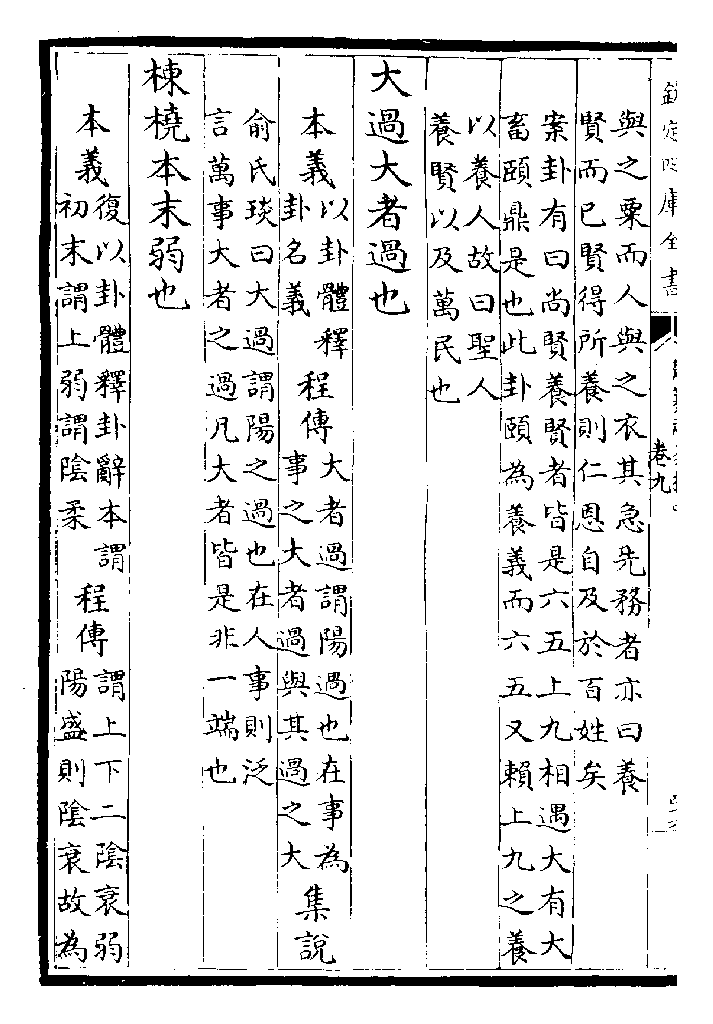 欽定四庫全書
卷九
與之粟而人與之衣其急先務者亦曰養
賢而已賢得所養則仁恩自及於百姓矣
案卦有曰尚賢養賢者皆是六五上九相遇大有大
畜頤鼎是也此卦頤為養義而六五又賴上九之養
以養人故曰聖人
養賢以及萬民也
大過大者過也
本義
以卦體釋
卦名義
程傳
大者過謂陽過也在事為
事之大者過與其過之大
集說
俞氏琰曰大過謂陽之過也在人事則泛
言萬事大者之過凡大者皆是非一端也
棟橈本末弱也
本義
復以卦體釋卦辭本謂
初末謂上弱謂陰柔
程傳
謂上下二陰衰弱
陽盛則陰衰故為